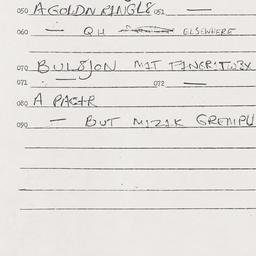 050 A GOLDN RINGLE 051 —
060 — QH ELSEWHERE
070 BUL8JON MIT
071 — 072 —
080 A PACTR
090 — BUT MIZIK GREMPU